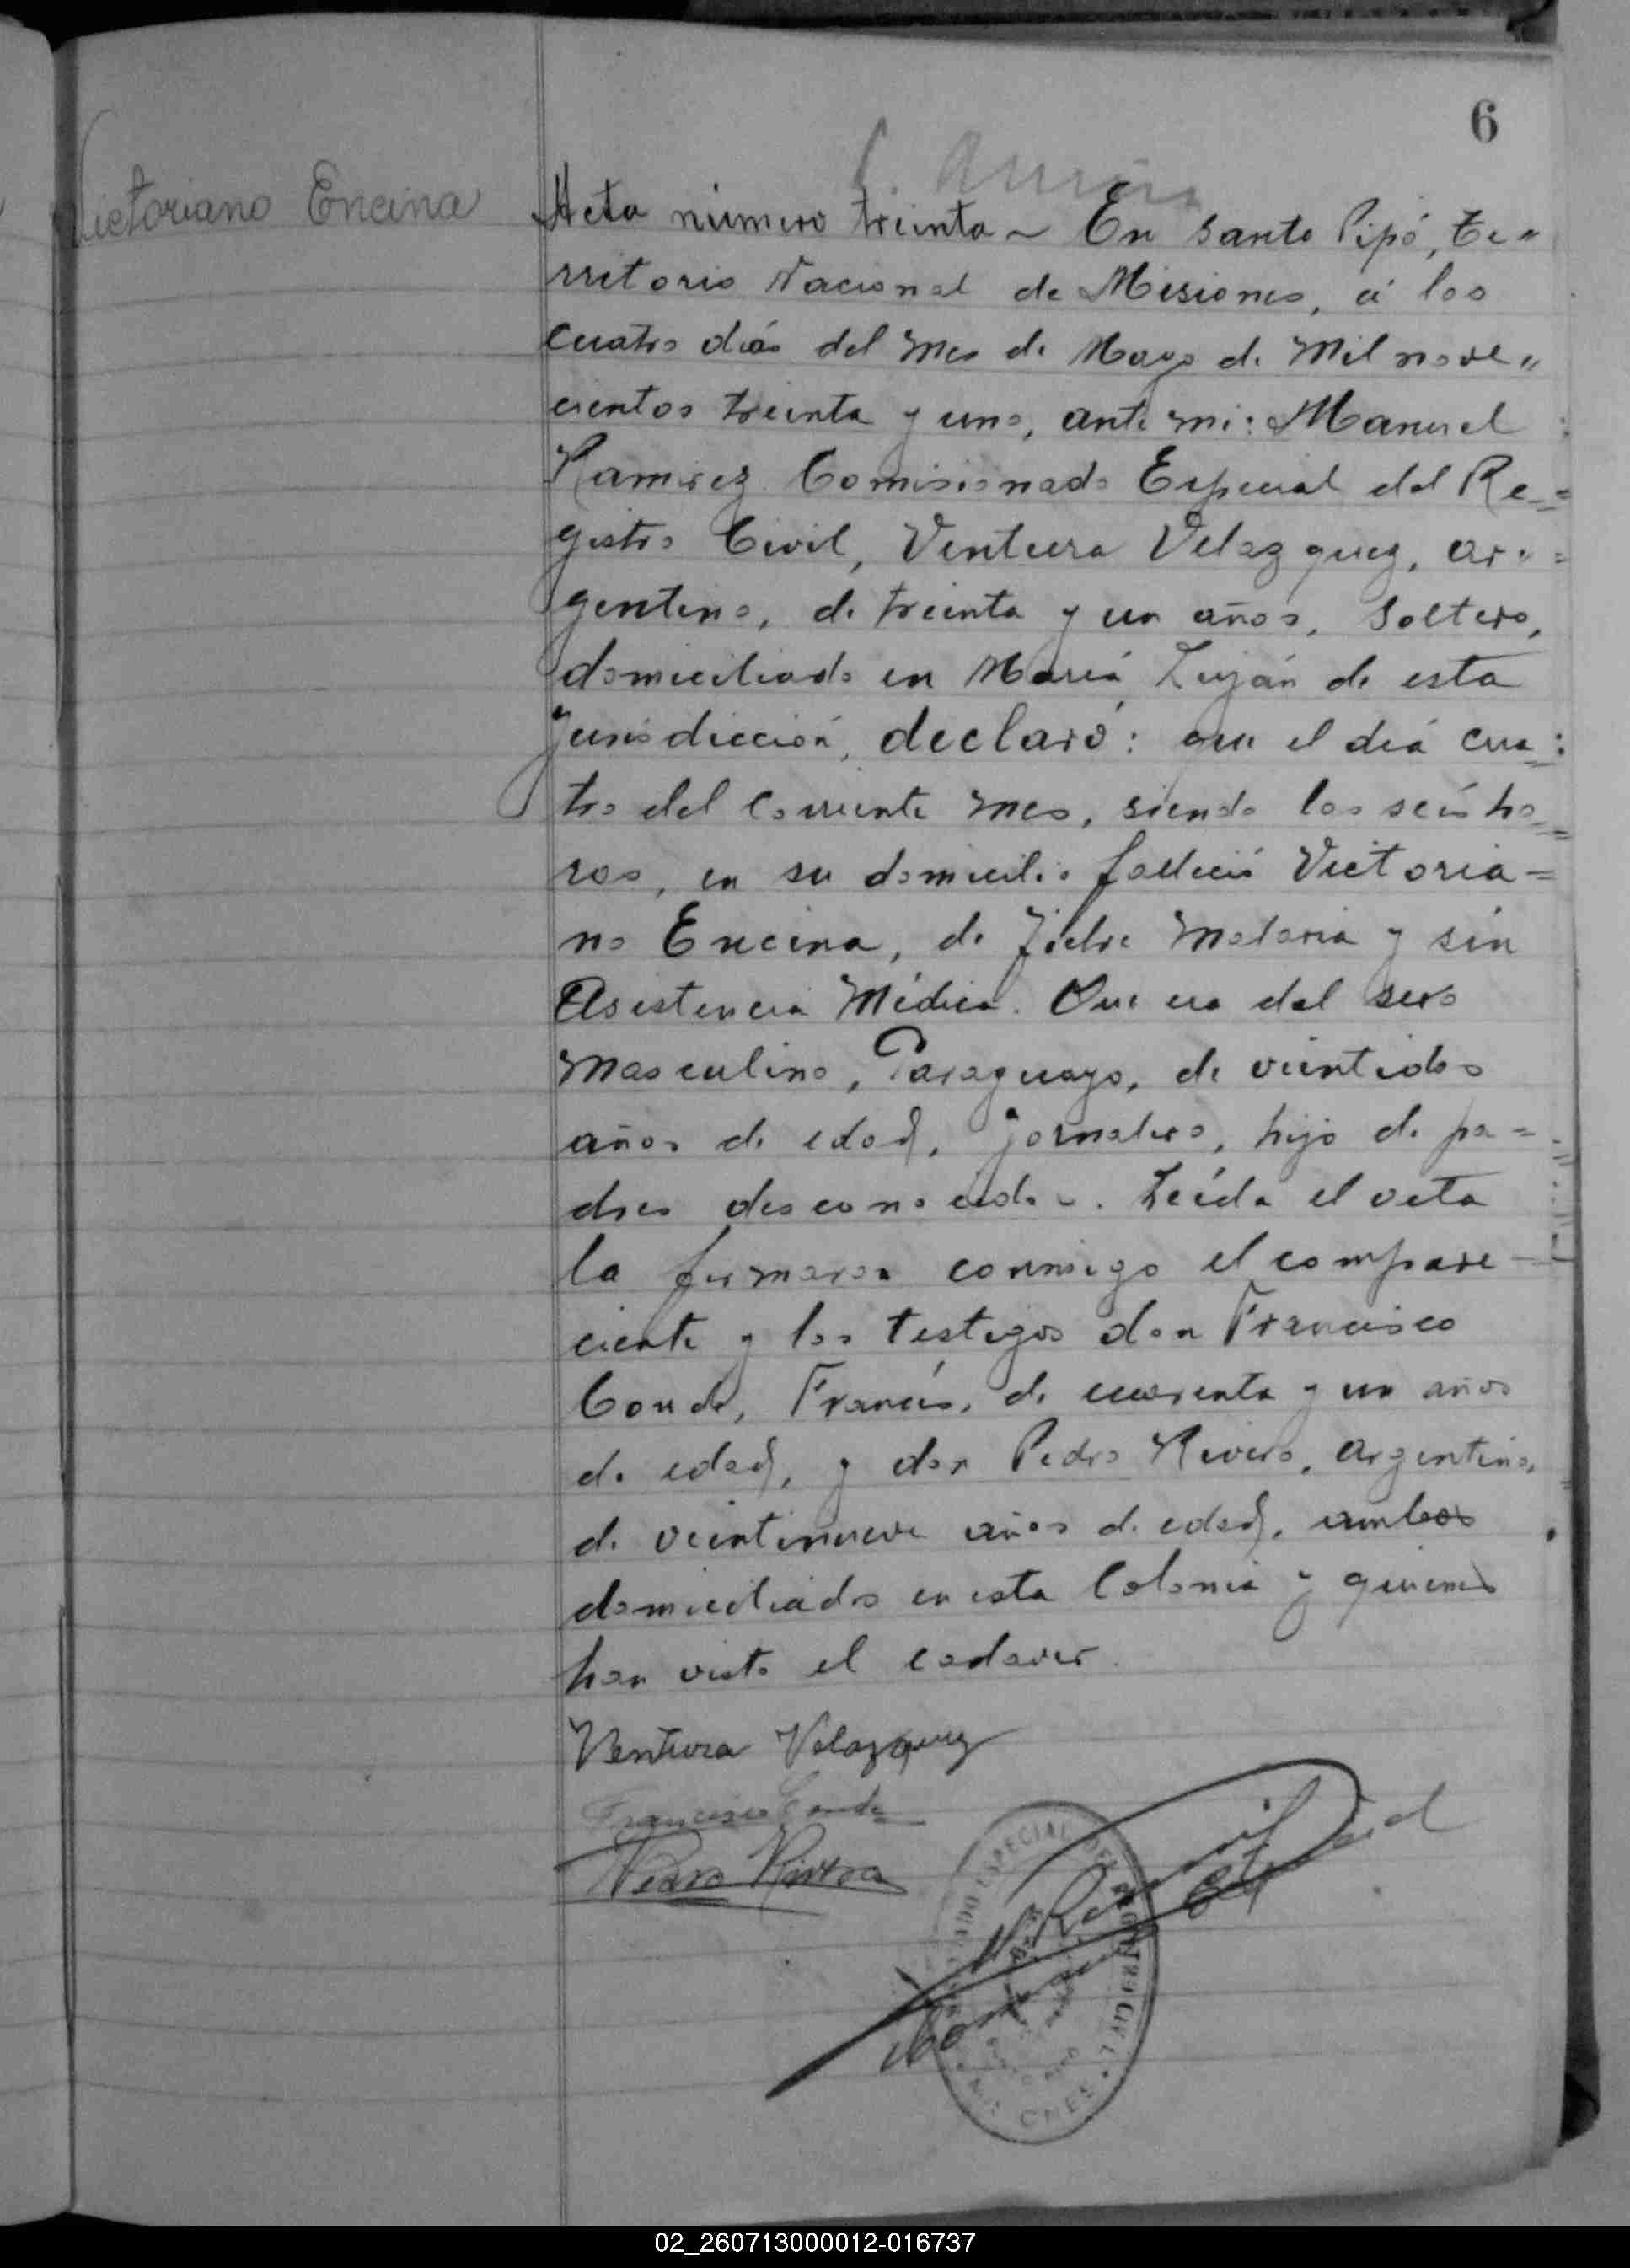 6
Victoriano Encina
Acta número treinta ~ En Santo Pipó, Te"
rritorio Nacional de Misiones, á los
cuatro días del mes de Mayo de Mil nove"
cientos treinta y uno, ante mi: Manuel
Ramirez Comisionado Especial del Re=
gistro Civil, Ventura Velazquez, ar"=
gentino, de treinta y un años, Soltero,
domiciliado en María Luján de esta
jurisdicción, declaró: que el día cua:
tro del corriente mes, siendo las seis ho=
ras, en su domicilio falleció Victoria=
no Encina, de fiebre malaria y sin
Asistencia Médica. Que era del sexo
masculino, Paraguayo, de veintidos
años de edad, jornalero, hijo de pa=
dres desconocidos. Leída el acta
la firmaron conmigo el compare-
ciente y los testigos don Francisco
Conde, Francés, de cuarenta y un años
de edad, y don Pedro Rivero, argentino,
de veintinueve años de edad, ambos
domiciliados en esta Colonia y quienes
han visto el cadaver.
Ventura Velazquez
Francisco Conde
Pedro Rivera
M Ramirez
ESPECIAL DEL REGISTRO CIVIL
MISIONES
02_260713000012-016737